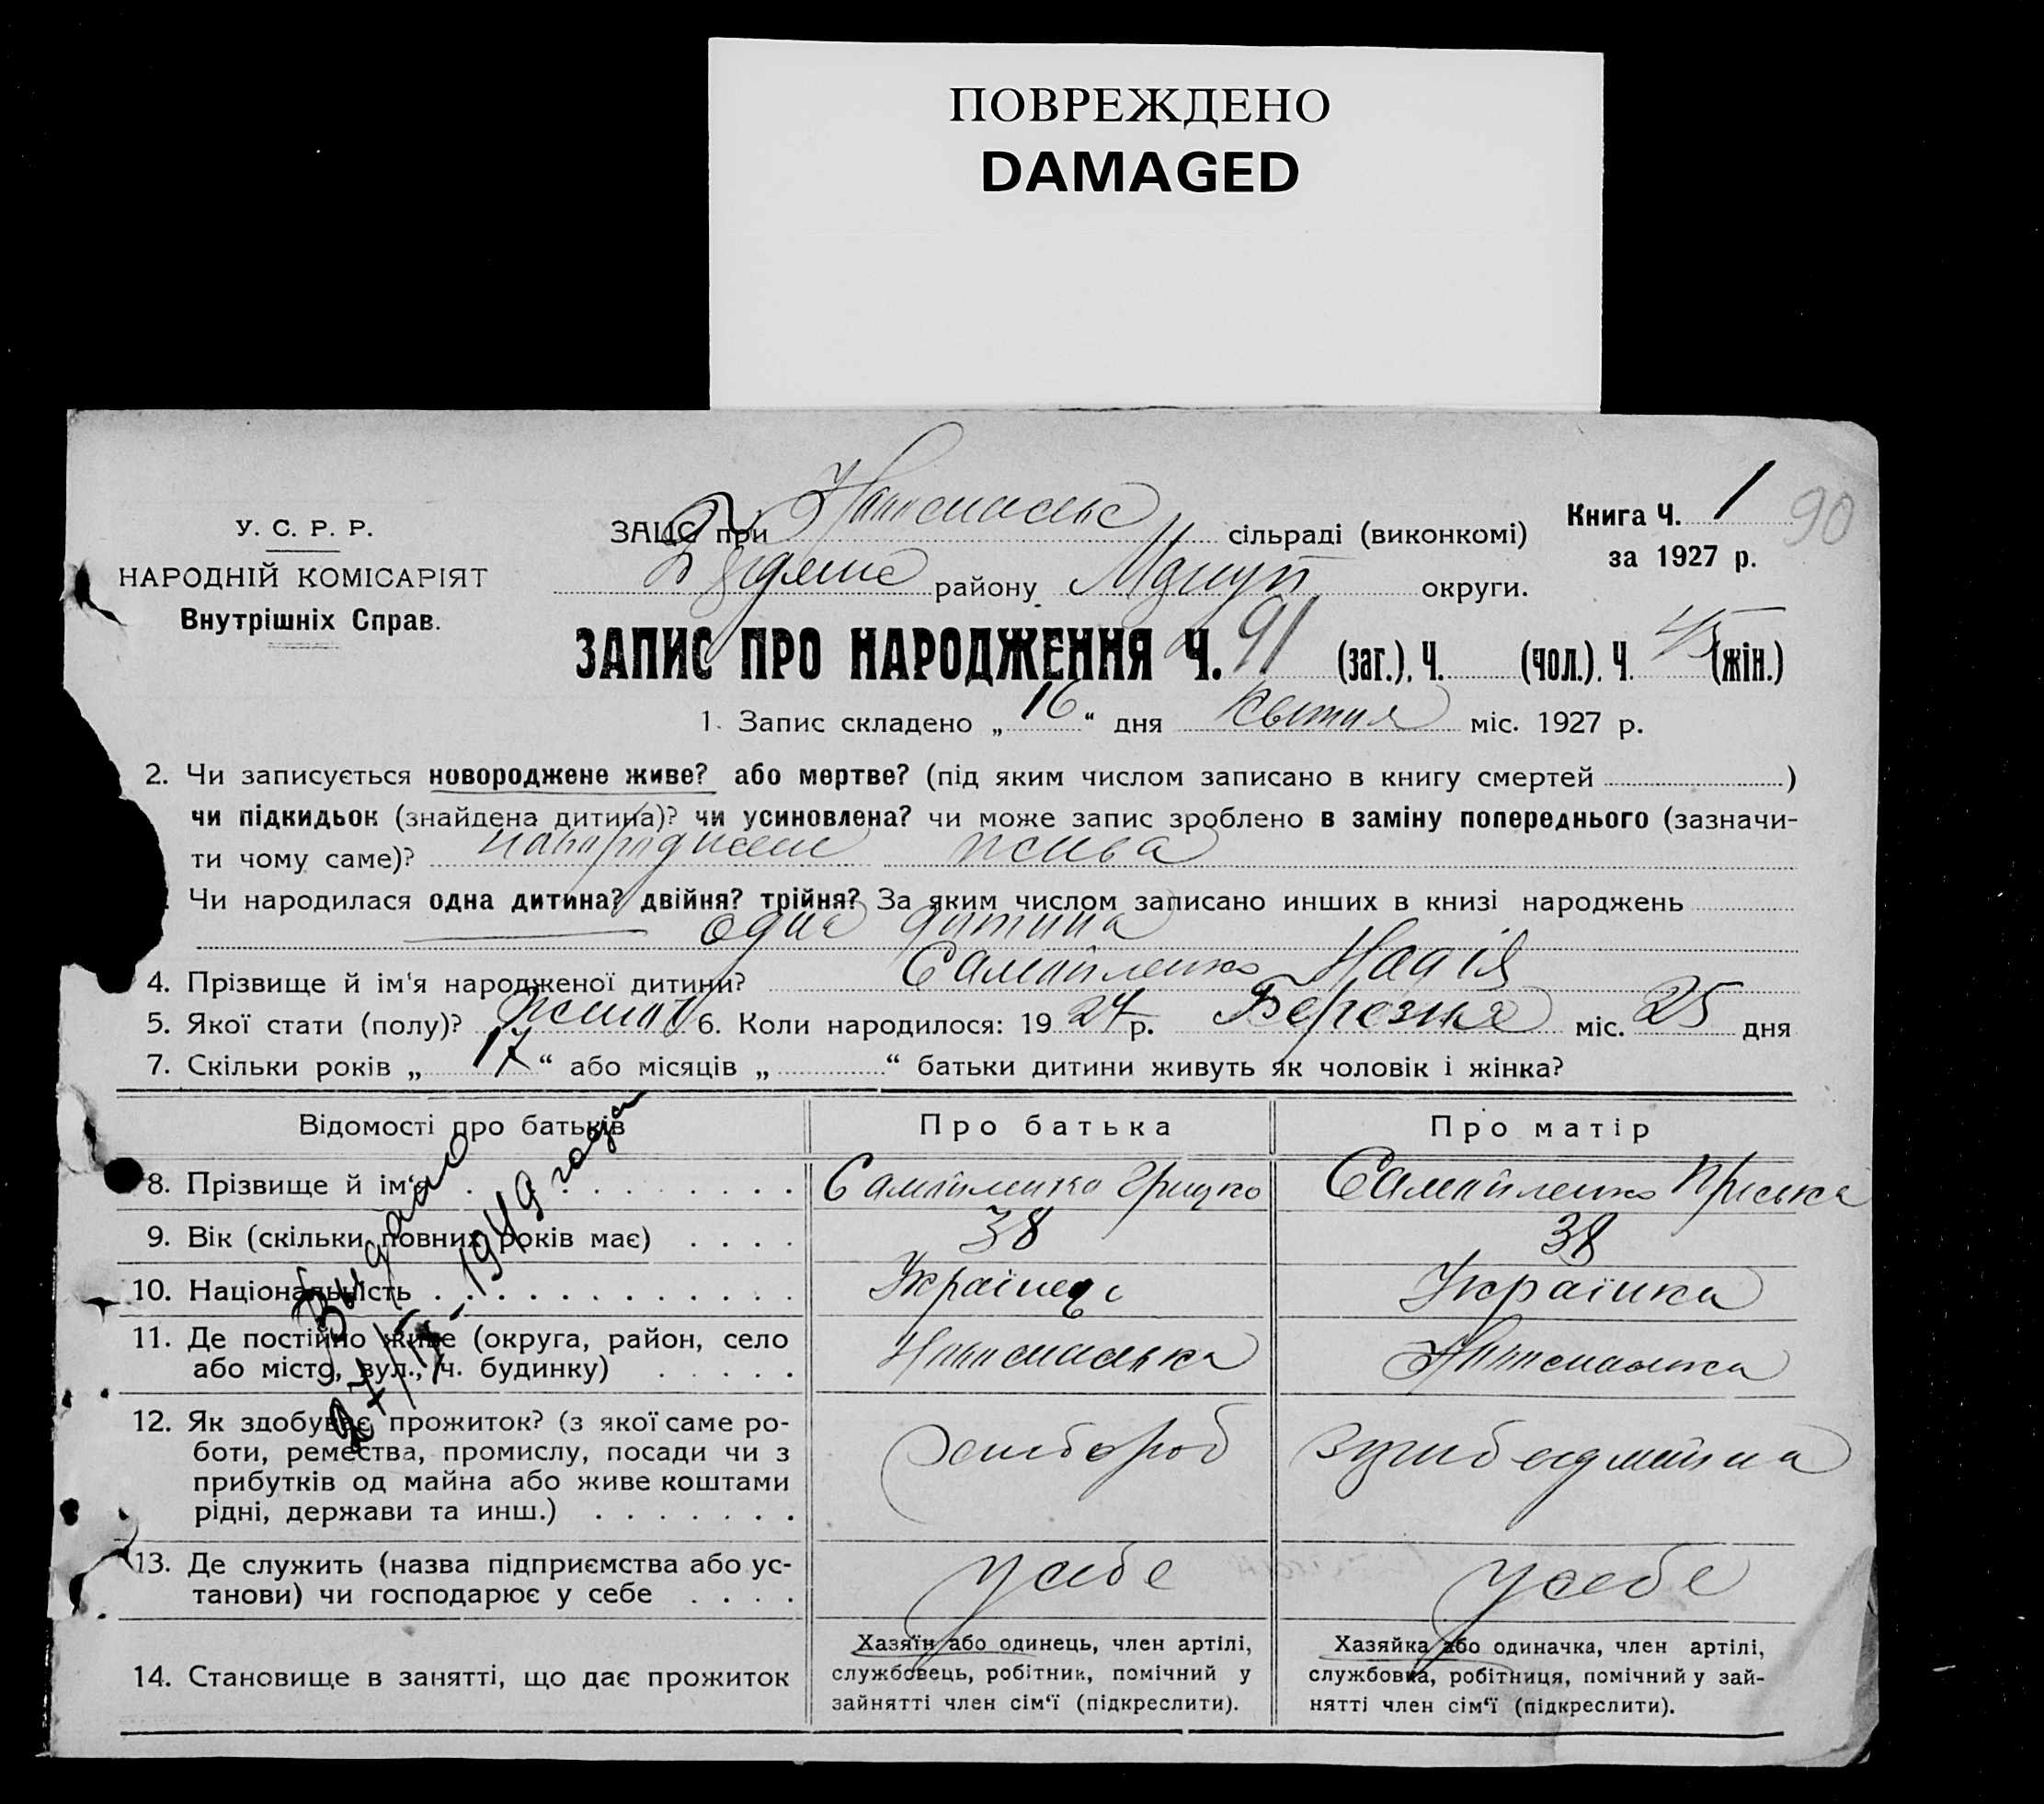 ПОВРЕЖДЕНО
DAMAGED
У. С. Р. Р.
НАРОДНІЙ КОМІСАРІЯТ
Внутрішніх Справ.
ЗАЦС при сільраді (виконкомі)
району округи.
Книга Ч. 1
90
за 1927 р.
ЗАПИС ПРО НАРОДЖЕННЯ Ч. 91 (заг.). Ч. (чол.). Ч. 45 (жін.)
1. Запис складено „ 16 “ дня квітня міс. 1927 р.
2. Чи записується новороджене живе? або мертве? (під яким числом записано в книгу смертей )
чи підкидьок (знайдена дитина)? чи усиновлена? чи може запис зроблено в заміну попереднього (зазначи-
ти чому саме)? жива
Чи народилася одна дитина? двійня? трійня? За яким числом записано инших в книзі народжень
одна дитина
4. Прізвище й ім‘я народженої дитини? Самойленко Надія
5. Якої стати (полу)? 6. Коли народилося: 19 27 р. Березня міс. 25 дня
7. Скільки років „ 17 “ або місяців „ “ батьки дитини живуть як чоловік і жінка?
Відомості про батьків Про батька Про матір
8. Прізвище й ім‘я Самойленко Грицко Самойленко Пріська
9. Вік (скільки повних років має) 38 38
10. Національність Українець Українка
11. Де постійно живе (округа, район, село
або місто, вул., ч. будинку)
12. Як здобуває прожиток? (з якої саме ро-
боти, ремества, промислу, посади чи з
прибутків од майна або живе коштами
рідні, держави та инш.)
хлібороб
13. Де служить (назва підприємства або ус-
танови) чи господарює у себе
у себе у себе
14. Становище в занятті, що дає прожиток
Хазяїн або одинець, член артілі,
службовець, робітник, помічний у
зайнятті член сім‘ї (підкреслити).
Хазяйка або одиначка, член артілі,
службовка, робітниця, помічний у зай-
нятті член сім‘ї (підкреслити).
Выдано
1949 года